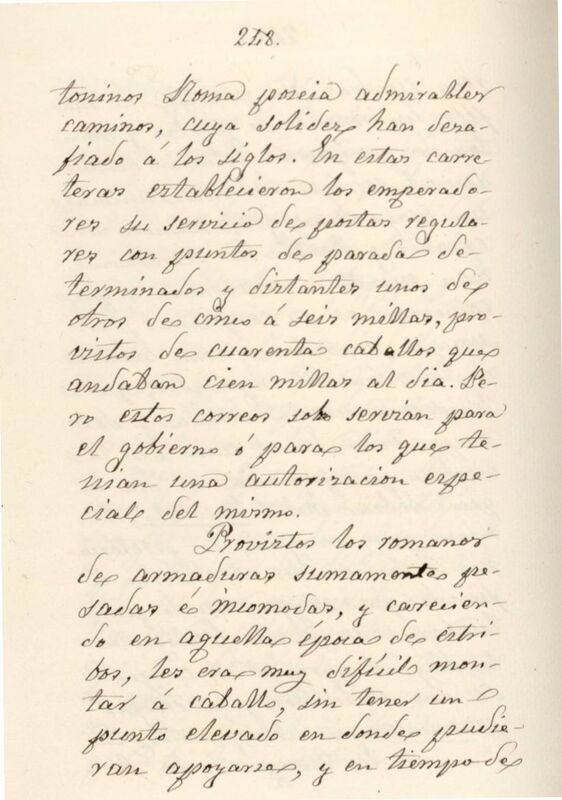 248.
toninos Roma poseia admirables
caminos, cuya solidez han desa-
fiado á los siglos. En estas carre-
teras establecieron los emperado-
res su servicio de postas regula-
res con puntos de parada de-
terminados y distantes unos de
otros de cinco á seis millas, pro-
vistos de cuarenta caballos que
andaban cien millas al dia. Pe-
ro estos correos solo servian para
el gobierno ó para los que te-
nian una autorizacion espe-
cial del mismo.
Provistos los romanos
de armaduras sumamente pe-
sadas é incomodas, y carecien-
do en aquella época de estri-
bos, les era muy difícil mon-
tar á caballo, sin tener un
punto elevado en donde pudie-
ran apoyarse, y en tiempo de